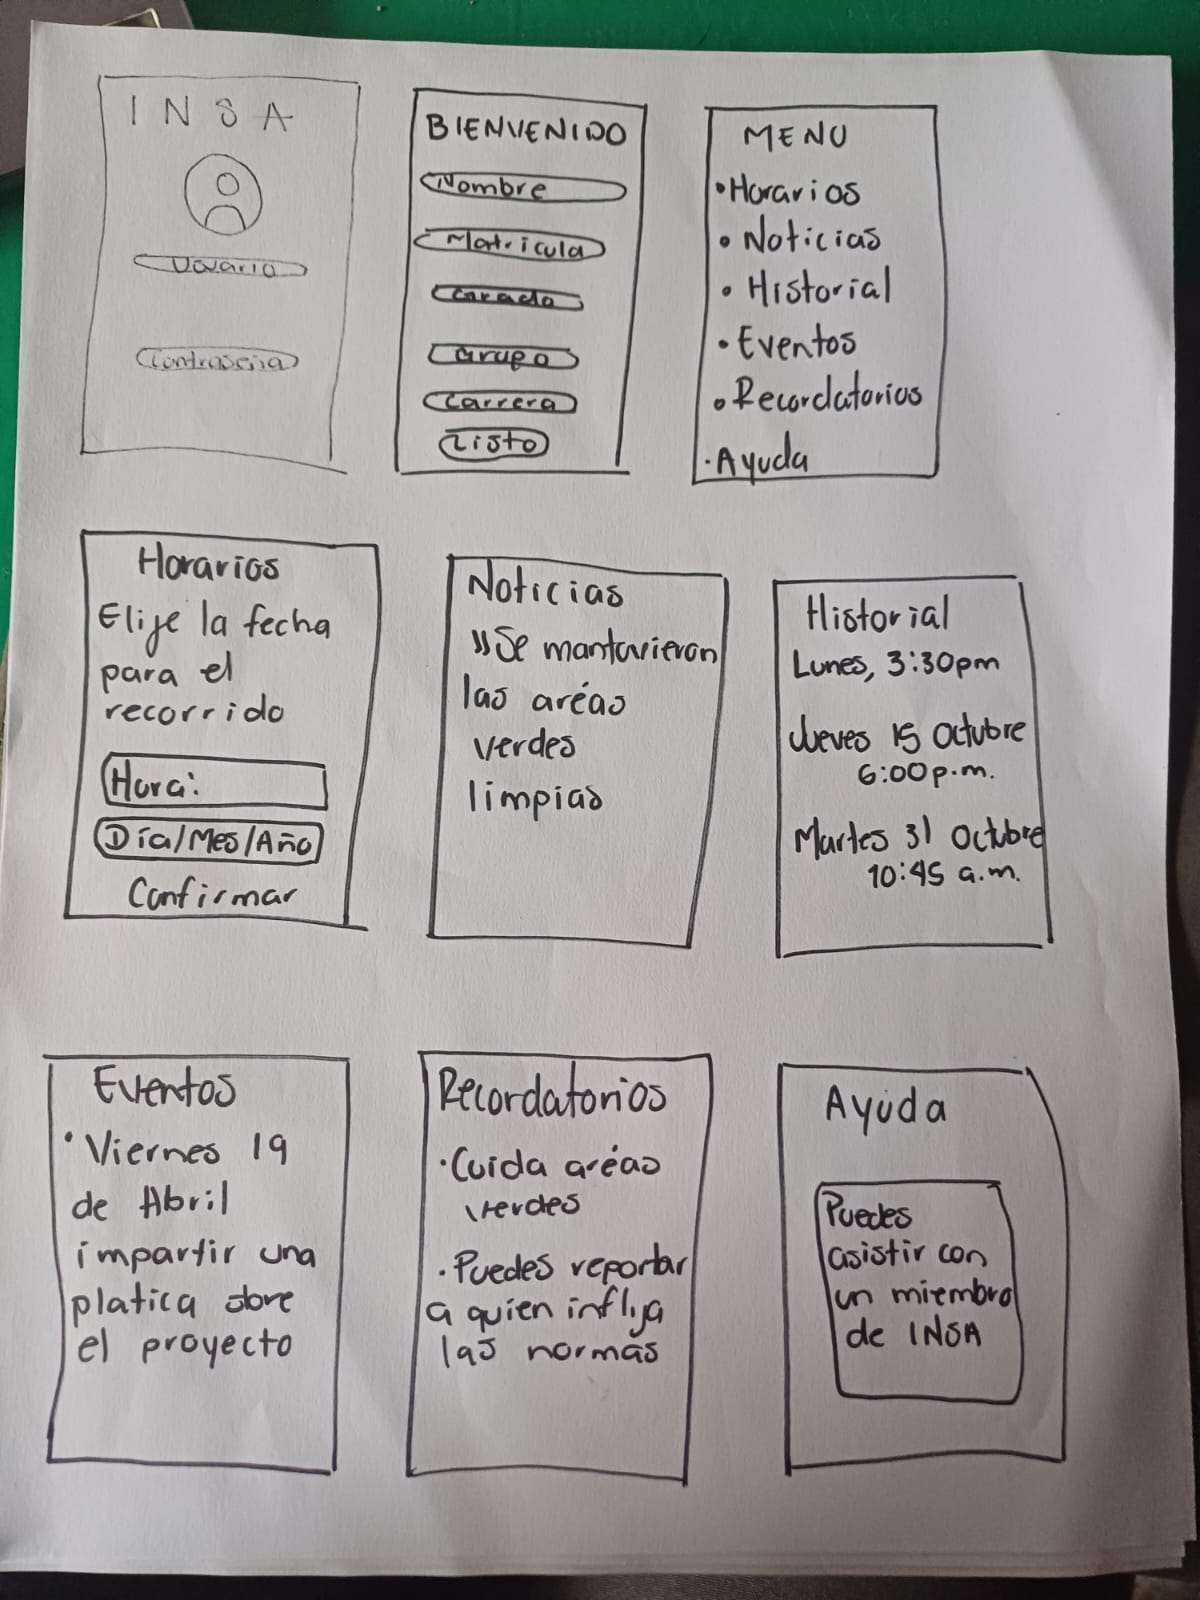 INSA
Usuario
Contraseña
BIENVENIDO
Nombre
Matricula
Grado
Grupo
Carrera
Listo
MENU
•Horarios
• Noticias
• Historial
• Eventos
• Recordatorios
•Ayuda
Horarios
Elije la fecha
para el
recorrido
Hora:
Día/Mes/Año
Confirmar
Noticias
"Se mantuvieron
las aréas
verdes
limpias
Historial
Lunes, 3:30pm
Jueves 15 Octubre
6:00p.m.
Martes 31 Octubre
10:45 a.m.
Eventos
• Viernes 19
de Abril
impartir una
platica sobre
el proyecto
Recordatorios
•Cuida aréas
verdes
•Puedes reportar
a quien inflija
las normas
Ayuda
Puedes
asistir con
un miembro
de INSA